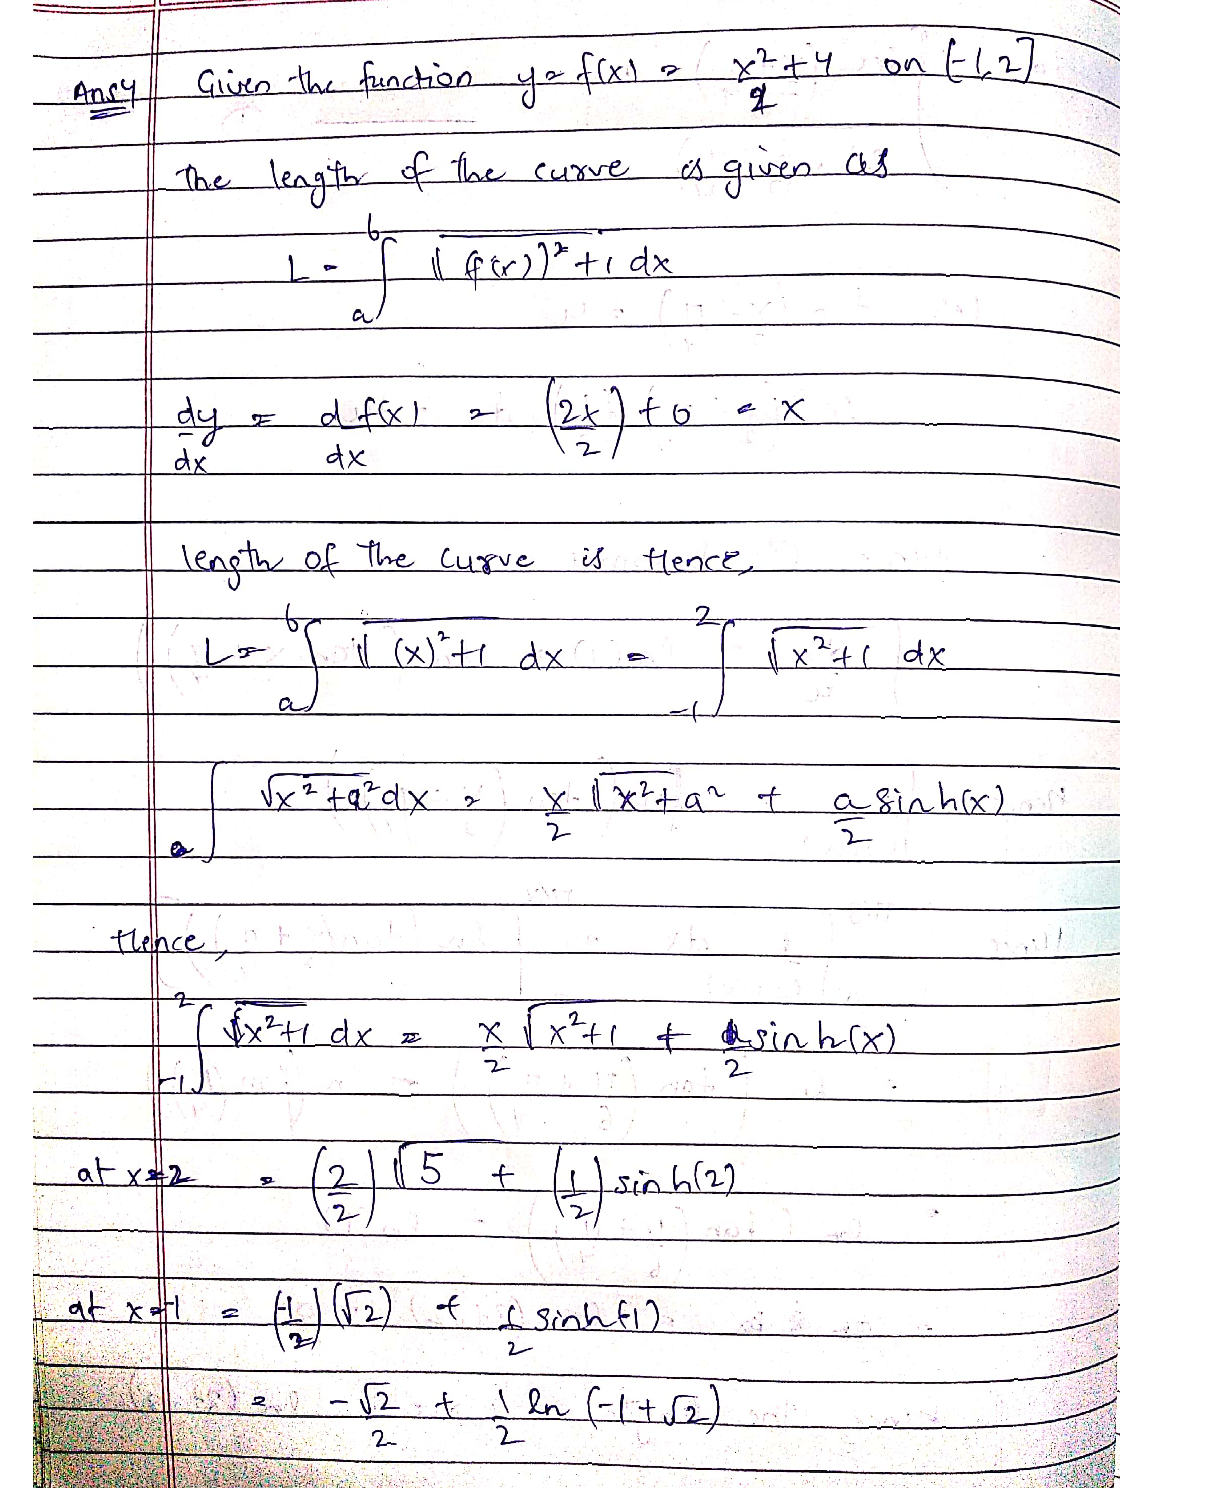 Ans4 Given the function y = f(x) = x²+4/2 on [-1,2]
The length of the curve is given as
L = ∫ₐᵇ √(f'(x))²+1 dx
dy/dx = d f(x)/dx = (2x/2) + 0 = x
length of the curve is Hence,
L = ∫ₐᵇ √(x)²+1 dx = ∫₋₁² √x²+1 dx
∫ √x²+a² dx = x/2 √x²+a² + a/2 sinh(x)
Hence,
∫₋₁² √x²+1 dx = x/2 √x²+1 + 1/2 sinh(x)
at x=2 = (2/2) √5 + (1/2) sinh(2)
at x=-1 = (-1/2) (√2) + 1/2 sinh(-1)
= -√2/2 + 1/2 ln (-1+√2)